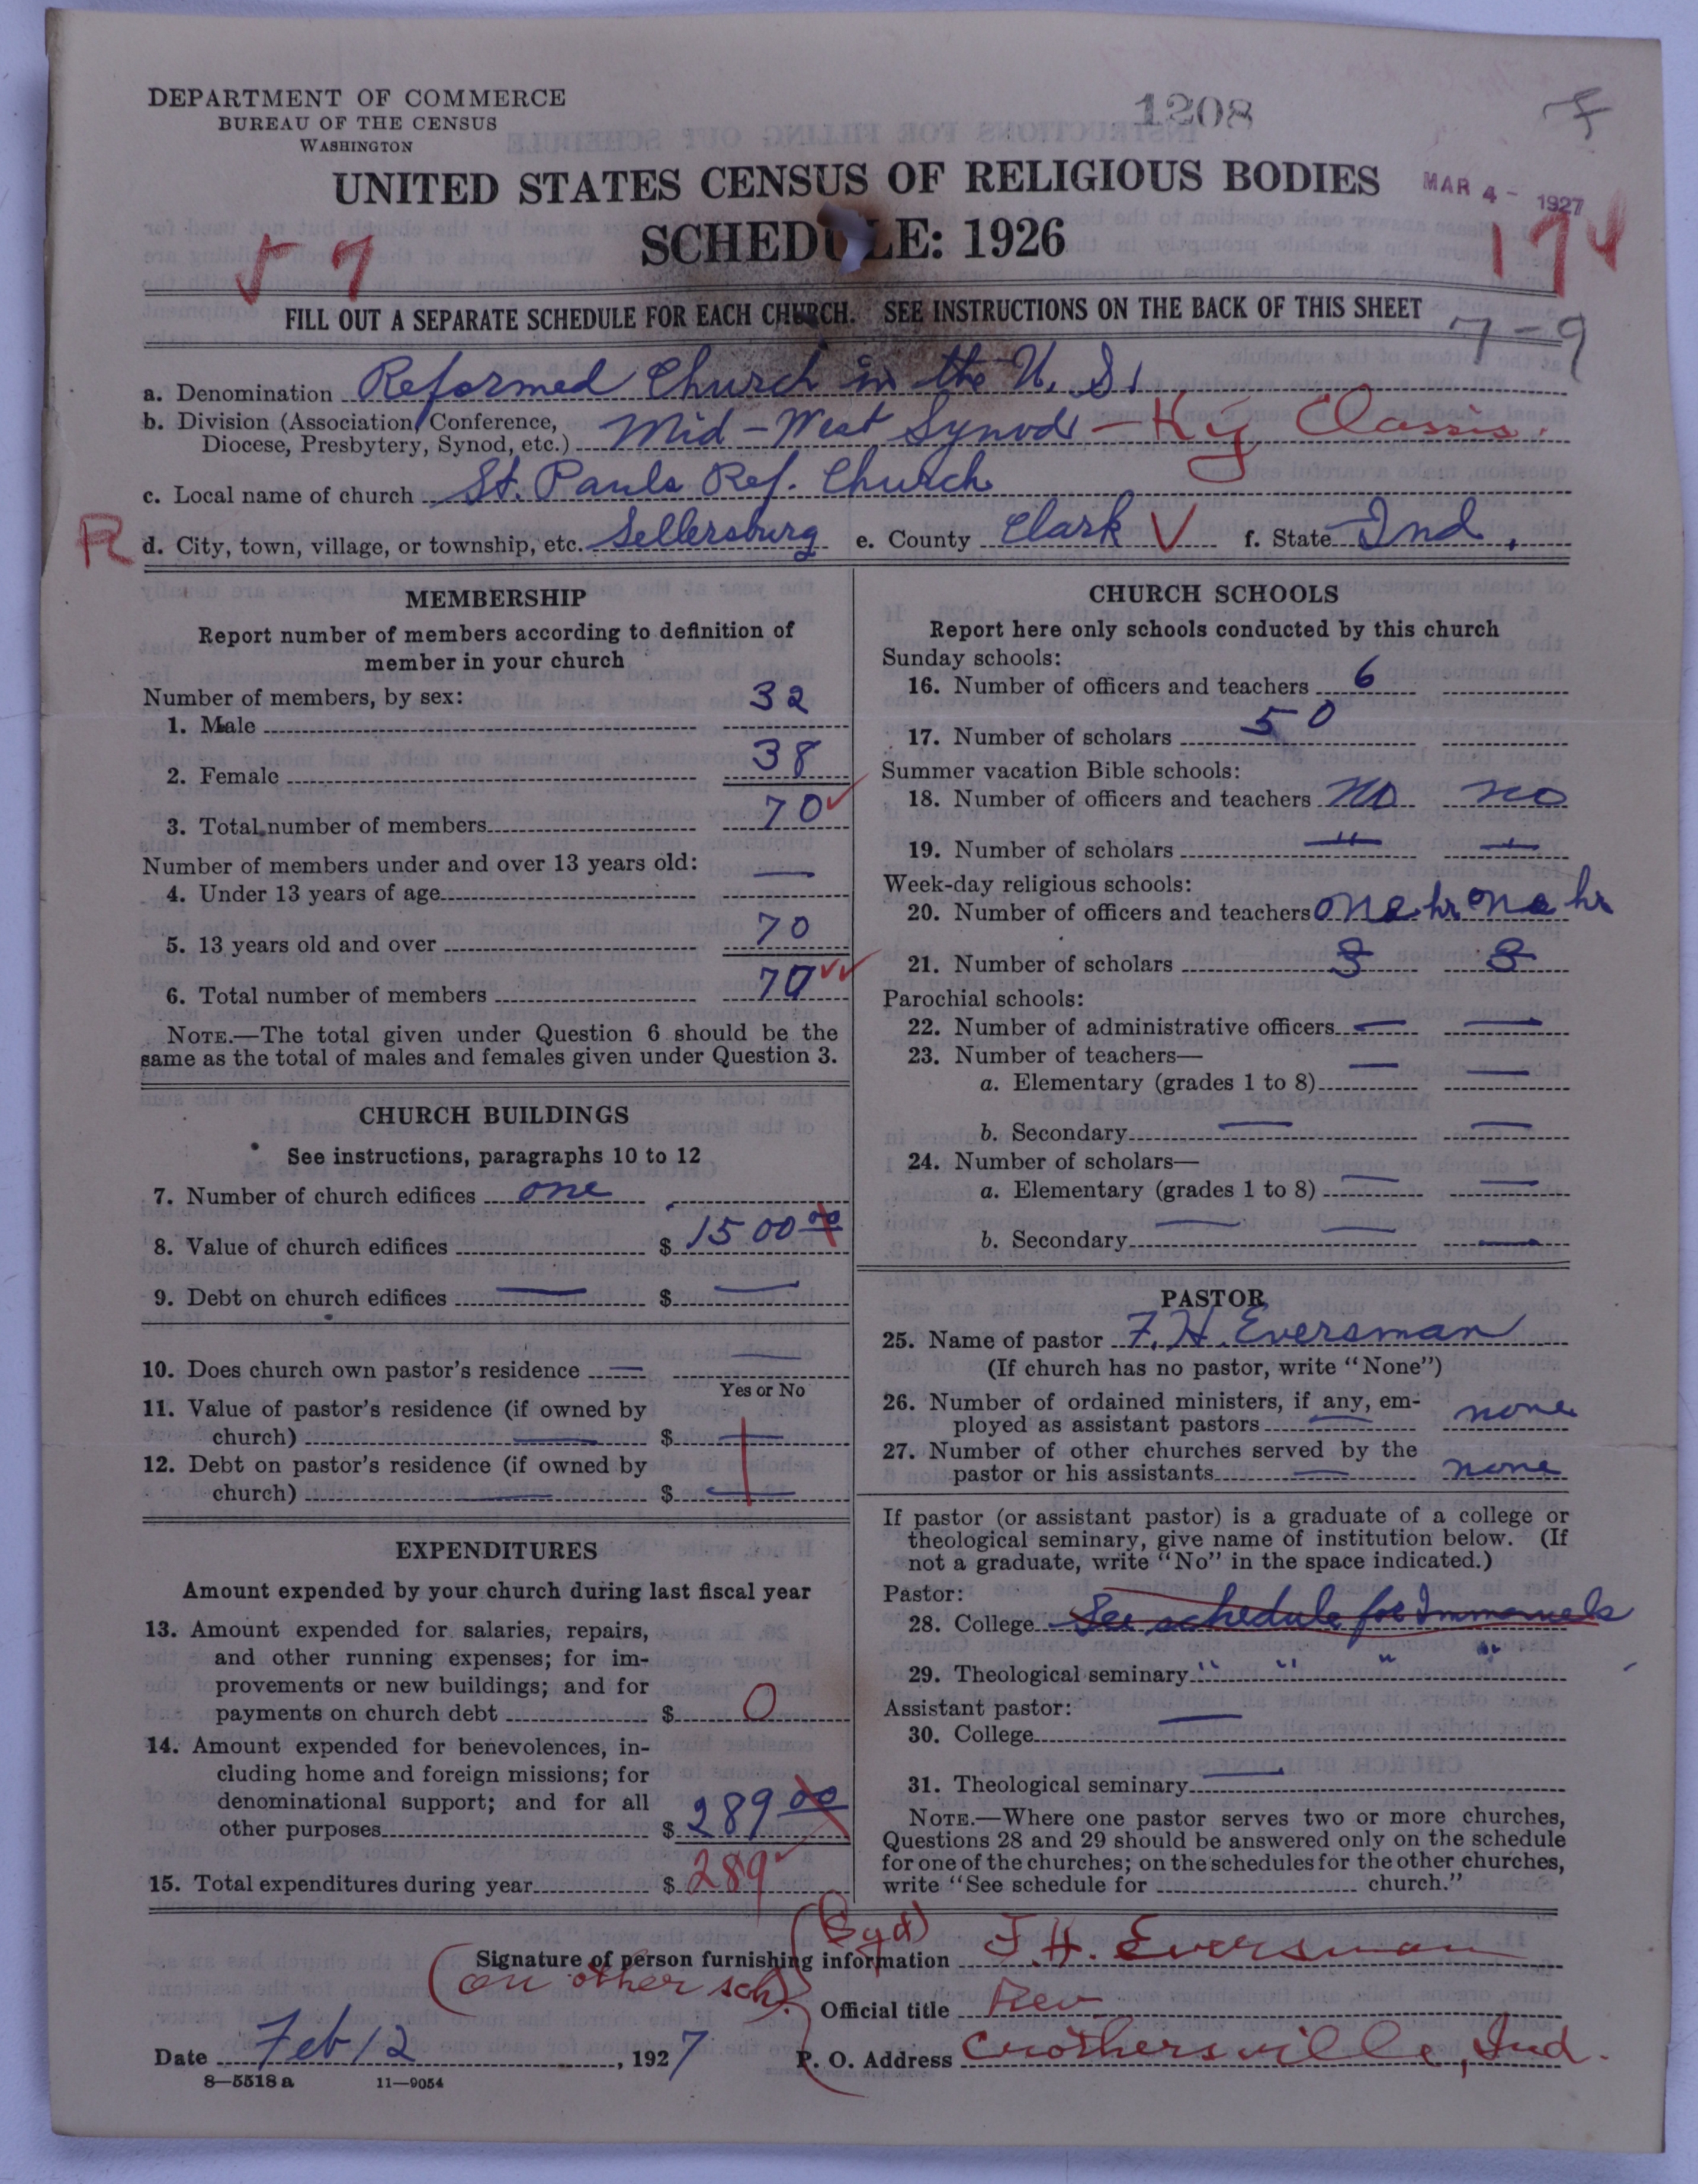 DEPARTMENT OF COMMERCE
BUREAU OF THE CENSUS
WASHINGTON
1208
UNITED STATES CENSUS OF RELIGIOUS BODIES
MAR 4 - 1927
SCHEDULE: 1926
57
174
FILL OUT A SEPARATE SCHEDULE FOR EACH CHURCH. SEE INSTRUCTIONS ON THE BACK OF THIS SHEET
7-9
a. Denomination Reformed Church in the U. S.
b. Division (Association, Conference, Diocese, Presbytery, Synod, etc.) Mid-West Synod - Ky Classis.
c. Local name of church St. Pauls Ref. Church
R d. City, town, village, or township, etc. Sellersburg e. County Clark V f. State Ind.
MEMBERSHIP
Report number of members according to definition of
member in your church
Number of members, by sex:
1. Male 32
2. Female 38
3. Total number of members 70
Number of members under and over 13 years old:
4. Under 13 years of age —
5. 13 years old and over 70
6. Total number of members 70
NOTE.—The total given under Question 6 should be the
same as the total of males and females given under Question 3.
CHURCH BUILDINGS
See instructions, paragraphs 10 to 12
7. Number of church edifices one
8. Value of church edifices $ 1500 00
9. Debt on church edifices — $ —
10. Does church own pastor's residence — —
Yes or No
11. Value of pastor's residence (if owned by
church) — $ —
12. Debt on pastor's residence (if owned by
church) — $ —
EXPENDITURES
Amount expended by your church during last fiscal year
13. Amount expended for salaries, repairs,
and other running expenses; for im-
provements or new buildings; and for
payments on church debt $ 0
14. Amount expended for benevolences, in-
cluding home and foreign missions; for
denominational support; and for all
other purposes $ 289 00
15. Total expenditures during year $ 289
CHURCH SCHOOLS
Report here only schools conducted by this church
Sunday schools:
16. Number of officers and teachers 6
17. Number of scholars 50
Summer vacation Bible schools:
18. Number of officers and teachers no no
19. Number of scholars " "
Week-day religious schools:
20. Number of officers and teachers one hr one hr
21. Number of scholars 3 3
Parochial schools:
22. Number of administrative officers — —
23. Number of teachers—
a. Elementary (grades 1 to 8) — —
b. Secondary — —
24. Number of scholars—
a. Elementary (grades 1 to 8) — —
b. Secondary — — —
PASTOR
25. Name of pastor F. H. Eversman
(If church has no pastor, write "None")
26. Number of ordained ministers, if any, em-
ployed as assistant pastors — none
27. Number of other churches served by the
pastor or his assistants — none
If pastor (or assistant pastor) is a graduate of a college or
theological seminary, give name of institution below. (If
not a graduate, write "No" in the space indicated.)
Pastor:
28. College See schedule for Immanuels
29. Theological seminary " " " "
Assistant pastor:
30. College —
31. Theological seminary —
NOTE.—Where one pastor serves two or more churches,
Questions 28 and 29 should be answered only on the schedule
for one of the churches; on the schedules for the other churches,
write "See schedule for church."
(Sgd)
Signature of person furnishing information F. H. Eversman
(on other sch.)
Official title Rev
Date Feb 12, 1927
P. O. Address Crothersville, Ind.
8—5518 a 11—9054